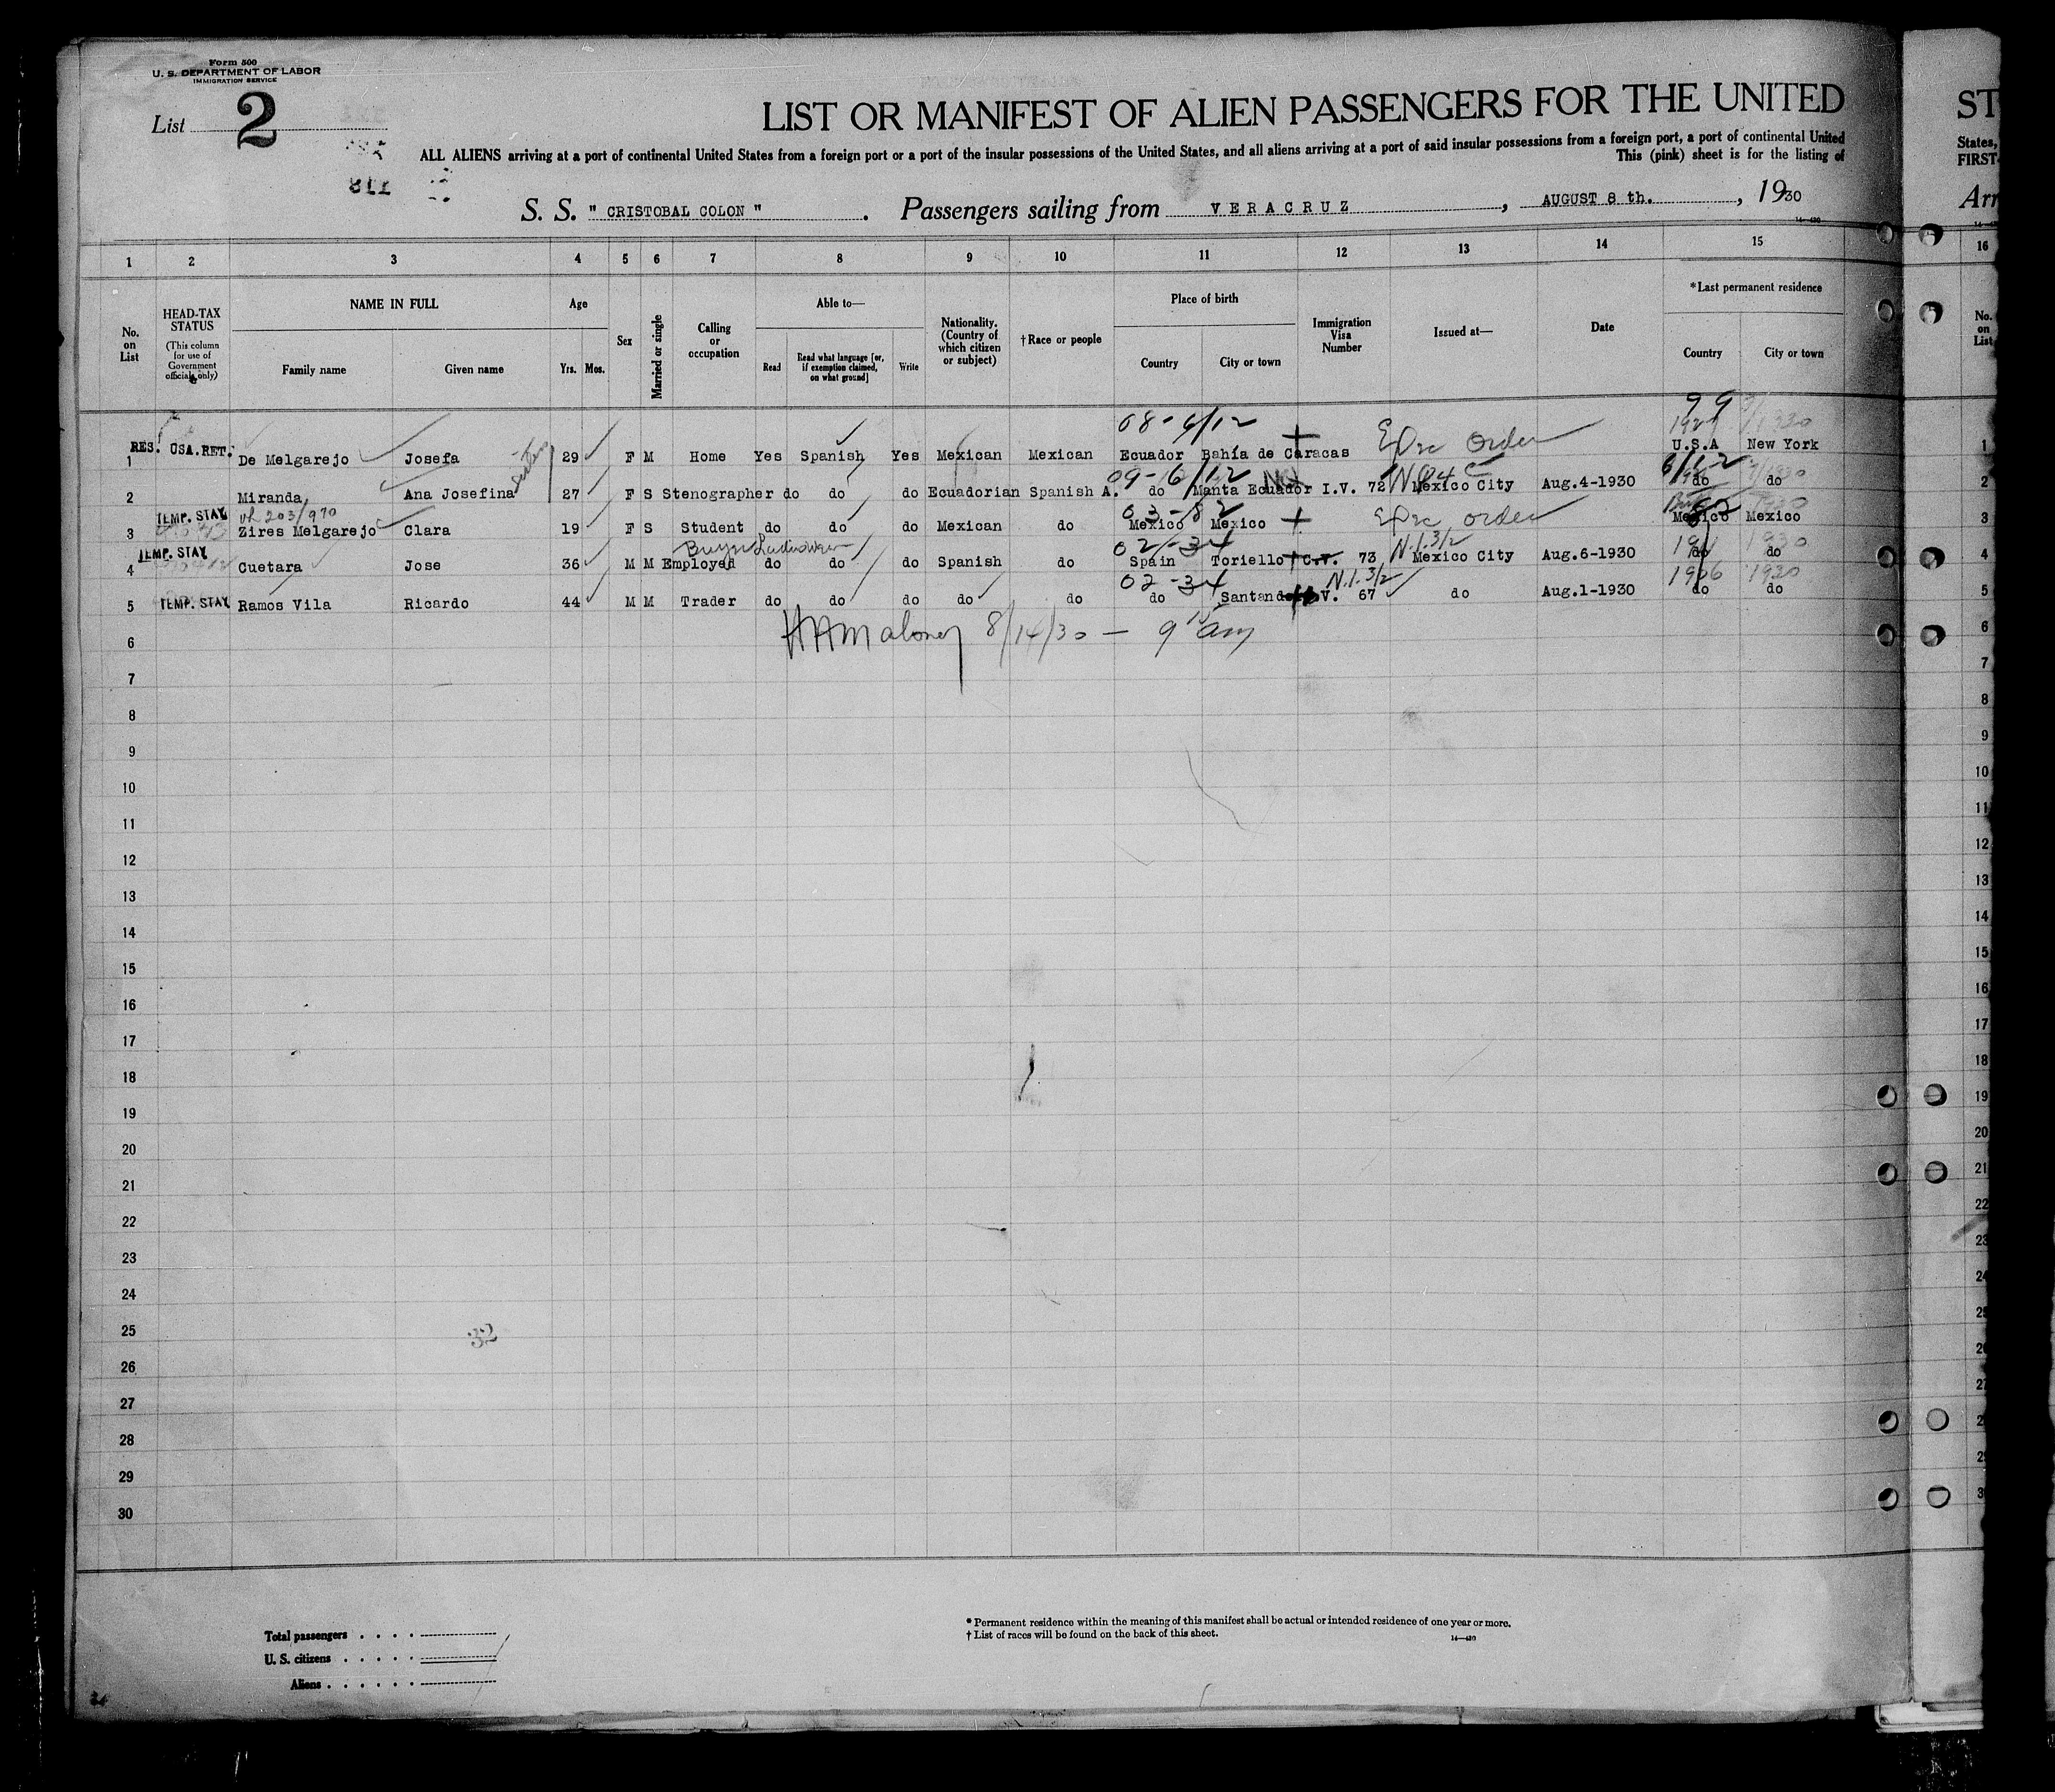 Form 500
U. S. DEPARTMENT OF LABOR
IMMIGRATION SERVICE
List 2
LIST OR MANIFEST OF ALIEN PASSENGERS FOR THE UNITED
ALL ALIENS arriving at a port of continental United States from a foreign port or a port of the insular possessions of the United States, and all aliens arriving at a port of said insular possessions from a foreign port, a port of continental United
This (pink) sheet is for the listing of
S. S. " CRISTOBAL COLON ". Passengers sailing from VERACRUZ, AUGUST 8 th., 1930
14—430
ST
States,
FIRST-
Arr
1 2 3 4 5 6 7 8 9 10 11 12 13 14 15 16
No. on List
HEAD-TAX STATUS
(This column for use of Government officials only)
NAME IN FULL
Family name Given name
Age
Yrs. Mos.
Sex
Married or single
Calling or occupation
Able to—
Read
Read what language [or, if exemption claimed, on what ground]
Write
Nationality. (Country of which citizen or subject)
†Race or people
Place of birth
Country City or town
Immigration Visa Number
Issued at—
Date
*Last permanent residence
Country City or town
No. on List
08-6/12 99
1 RES. USA.RET. De Melgarejo Josefa 29 F M Home Yes Spanish Yes Mexican Mexican Ecuador Bahía de Caracas Order U.S.A New York 1
09-6/12 6/12
2 Miranda, Ana Josefina sister 27 F S Stenographer do do do Ecuadorian Spanish A. do Manta Ecuador I.V. 72 Mexico City Aug.4-1930 do do 2
TEMP. STAY 203/970 03-82
3 Zires Melgarejo Clara 19 F S Student do do do Mexican do Mexico Mexico order Mexico Mexico 3
TEMP. STAY Buyer Ladies Wear 02-34 N.I.3/2 1930
4 Cuetara Jose 36 M M Employed do do do Spanish do Spain Toriello C.V. 73 Mexico City Aug.6-1930 do do 4
02-34 N.I.3/2 1906 1930
5 TEMP. STAY Ramos Vila Ricardo 44 M M Trader do do do do do do Santander V. 67 do Aug.1-1930 do do 5
HAMaloney 8/14/30 — 9 am
6 6
7 7
8 8
9 9
10 10
11 11
12 12
13 13
14 14
15 15
16 16
17 17
18 18
19 19
20 20
21 21
22 22
23 23
24 24
25 32 25
26
27
28
29
30
Total passengers . . . .
U. S. citizens . . . . .
Aliens . . . . . .
* Permanent residence within the meaning of this manifest shall be actual or intended residence of one year or more.
† List of races will be found on the back of this sheet.
14—430